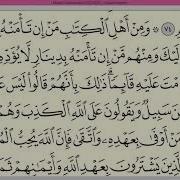 ٧٤ ۞ وَمِنْ أَهْلِ ٱلْكِتَٰبِ مَنْ إِن تَأْمَنْهُ
لَيْكَ وَمِنْهُم مَّنْ إِن تَأْمَنْهُ بِدِينَارٍ لَّا يُؤَدِّهِ
مْتَ عَلَيْهِ قَآئِمًا ۗ ذَٰلِكَ بِأَنَّهُمْ قَالُوا۟ لَيْسَ
نَ سَبِيلٌ وَيَقُولُونَ عَلَى ٱللَّهِ ٱلْكَذِبَ وَهُمْ
مَنْ أَوْفَىٰ بِعَهْدِهِۦ وَٱتَّقَىٰ فَإِنَّ ٱللَّهَ يُحِبُّ ٱلْمُ
ٱلَّذِينَ يَشْتَرُونَ بِعَهْدِ ٱللَّهِ وَأَيْمَٰنِهِمْ ثَمَ